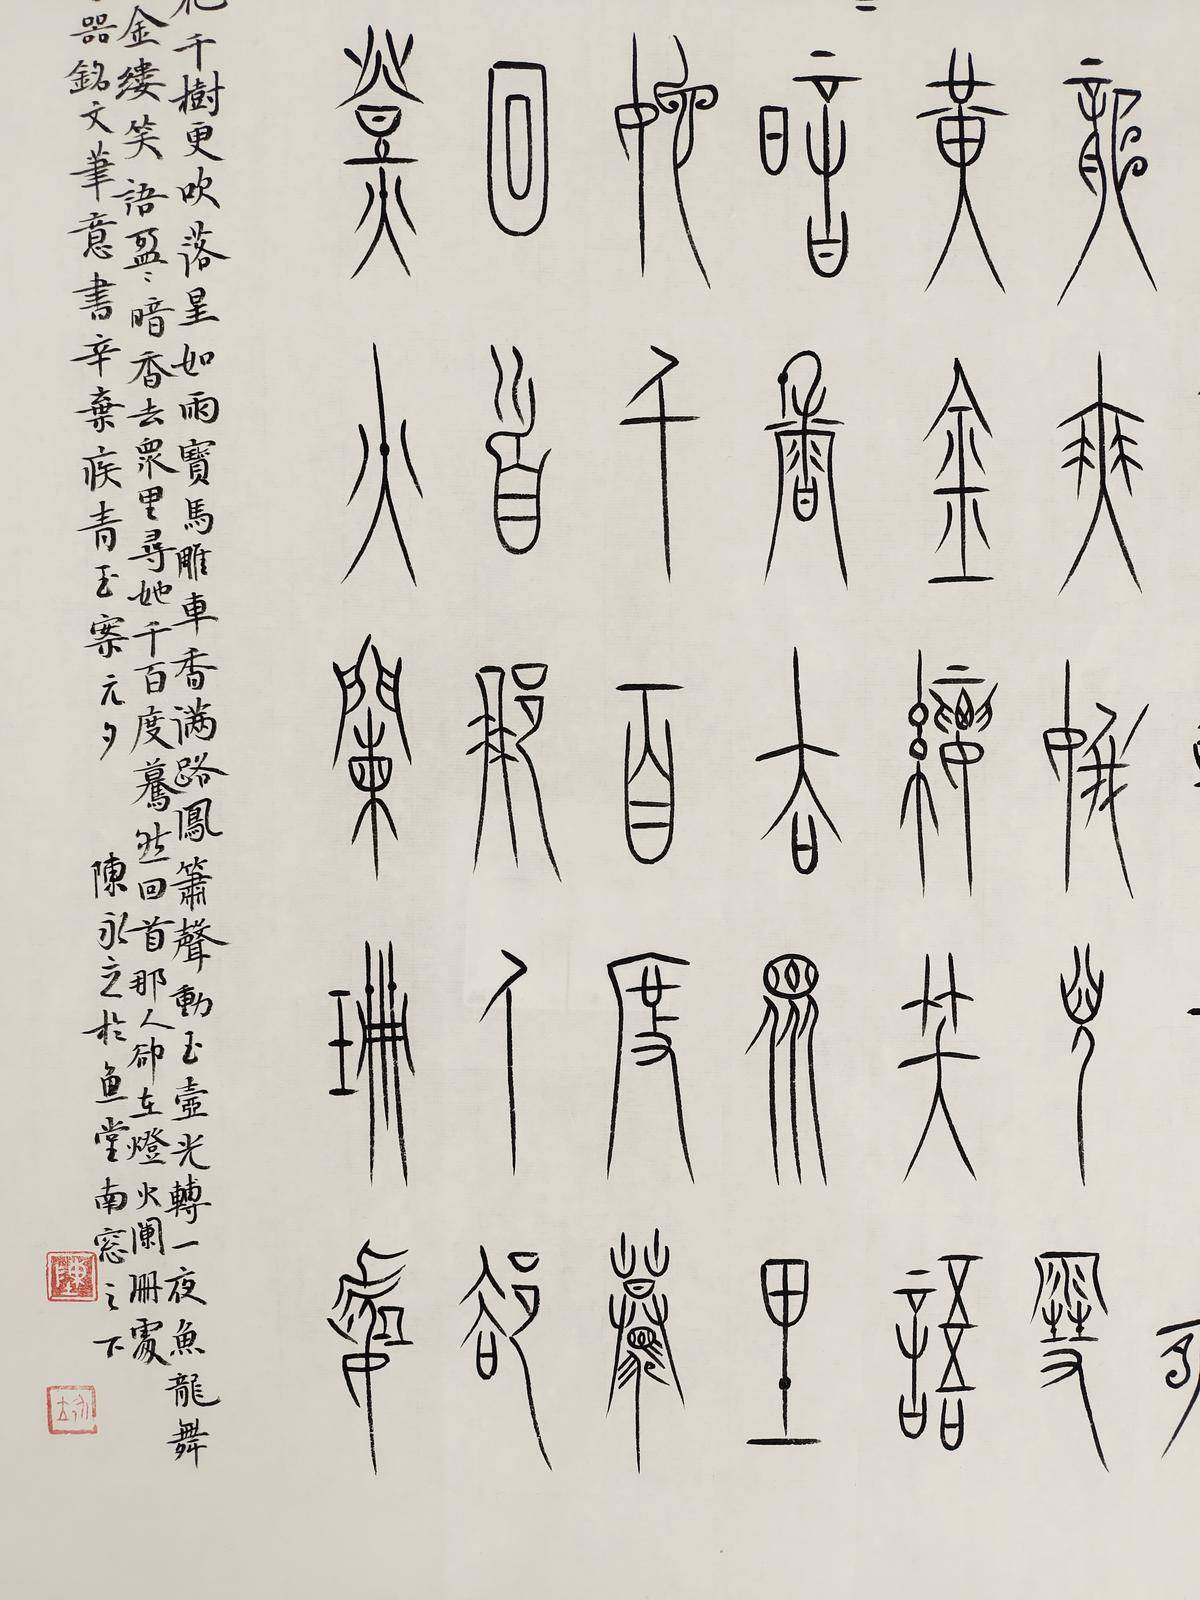 龍舞蛾兒雪
黃金縷笑語
暗香去眾里
她千百度驀
回首那人卻
燈火闌珊處
花千樹更吹落星如雨寶馬雕車香满路鳳簫聲動玉壺光轉一夜魚龍舞
金缕笑語盈〻暗香去眾里尋她千百度驀然回首那人卻在燈火闌冊處
器銘文筆意書辛棄疾青玉案元夕 陳永之於魚堂南窓之下
陳